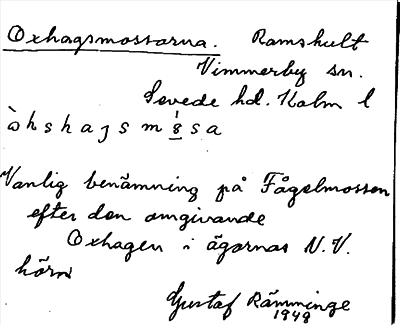 Oxhagsmossarna. Ramshult
Vimmerby sn.
Sevede hd. Kalm l
Vanlig benämning på Fågelmossen
efter den omgivande
Oxhagen i ägornas N.V.
hörn
Gustaf Rämminge
1948